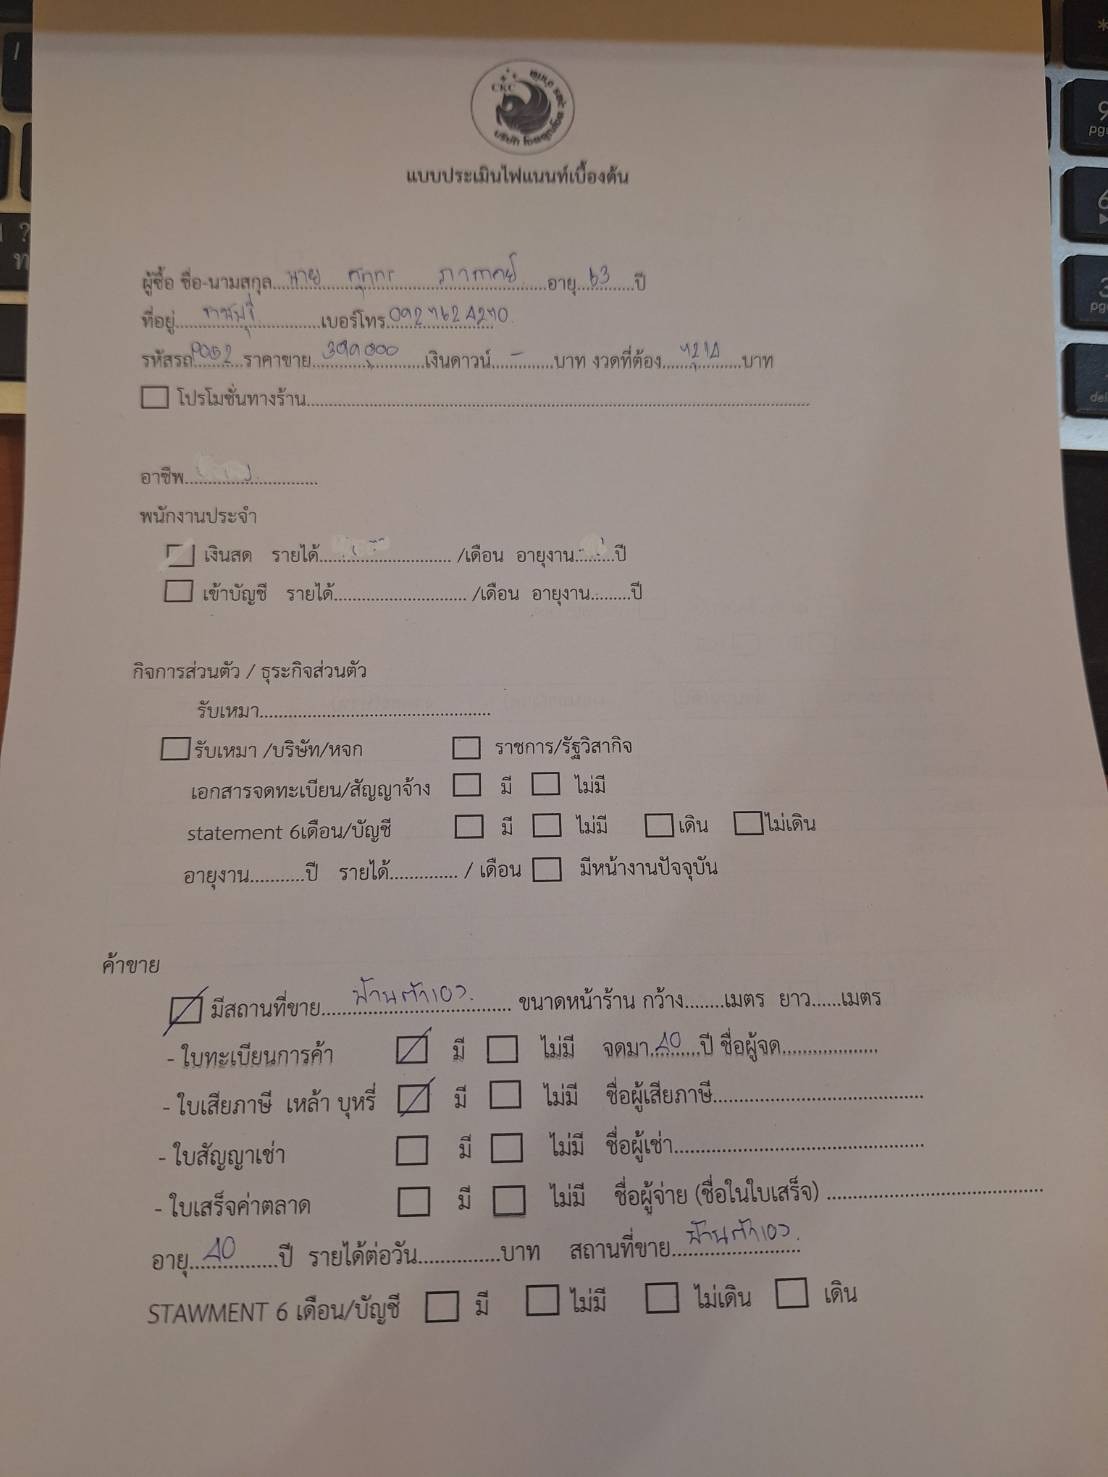 CKC
แบบประเมินไฟแนนท์เบื้องต้น
ผู้ซื้อ ชื่อ-นามสกุล...นาย.....................อายุ...63...ปี
ที่อยู่....................เบอร์โทร.
รหัสรถ.9052...ราคาขาย..399,000......เงินดาวน์...-...บาท งวดที่ต้อง...7214...บาท
โปรโมชั่นทางร้าน..........................................
อาชีพ......................
พนักงานประจำ
เงินสด รายได้...................... /เดือน อายุงาน........ปี
เข้าบัญชี รายได้...................... /เดือน อายุงาน........ปี
กิจการส่วนตัว / ธุระกิจส่วนตัว
รับเหมา..........................................
รับเหมา /บริษัท/หจก ราชการ/รัฐวิสากิจ
เอกสารจดทะเบียน/สัญญาจ้าง มี ไม่มี
statement 6เดือน/บัญชี มี ไม่มี เดิน ไม่เดิน
อายุงาน...........ปี รายได้.............. / เดือน มีหน้างานปัจจุบัน
ค้าขาย
มีสถานที่ขาย...บ้านตัวเอง....... ขนาดหน้าร้าน กว้าง........เมตร ยาว......เมตร
- ใบทะเบียนการค้า มี ไม่มี จดมา.40...ปี ชื่อผู้จด...................
- ใบเสียภาษี เหล้า บุหรี่ มี ไม่มี ชื่อผู้เสียภาษี..........................................
- ใบสัญญาเช่า มี ไม่มี ชื่อผู้เช่า..........................................
- ใบเสร็จค่าตลาด มี ไม่มี ชื่อผู้จ่าย (ชื่อในใบเสร็จ) ..........................................
อายุ..40......ปี รายได้ต่อวัน..............บาท สถานที่ขาย..บ้านตัวเอง.
STAWMENT 6 เดือน/บัญชี มี ไม่มี ไม่เดิน เดิน